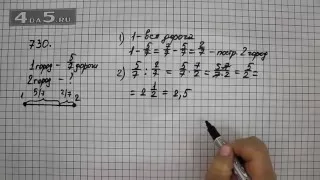 4DA5.RU
730.
1 город - 5/7 дороги
2 город - ?
5/7 2/7
1 2
1) 1 - вся дорога
1 - 5/7 = 7/7 - 5/7 = 2/7 - постр. 2 город
2) 5/7 : 2/7 = 5/7 · 7/2 = 5·7/7·2 = 5/2 =
= 2 1/2 = 2,5